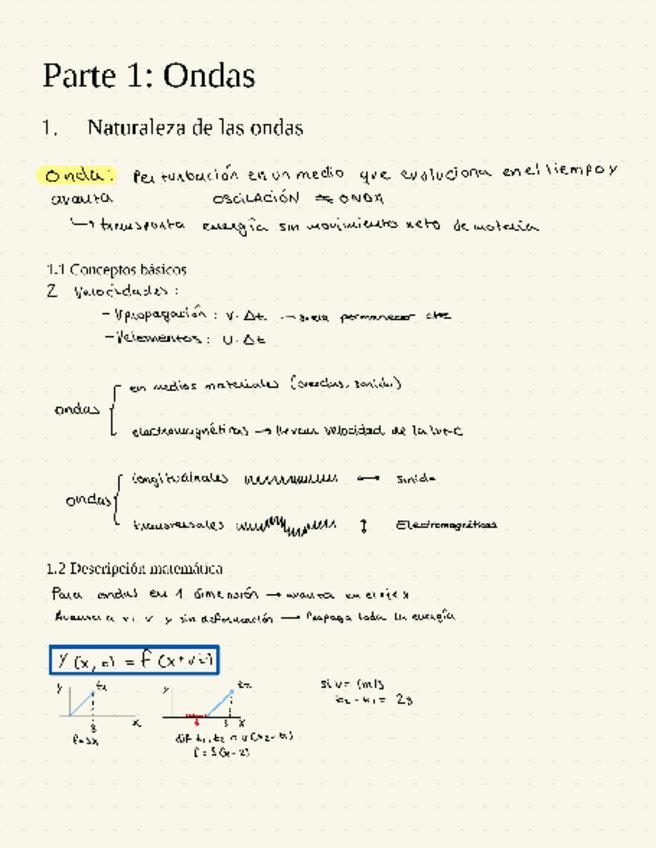 Parte 1: Ondas
1. Naturaleza de las ondas
Onda: Perturbación en un medio que evoluciona en el tiempo y
avanza OSCILACIÓN ⇋ ONDA
↳ transporta energía sin movimiento neto de materia
1.1 Conceptos básicos
2 Velocidades:
- Vpropagación: v·Δt → permanecer cte
- Velementos: U·Δt
ondas
en medios materiales (cuerdas, sonido)
electromagnéticas → llevan velocidad de la luz=C
ondas
longitudinales ↔ sonido
transversales ↕ Electromagnéticas
1.2 Descripción matemática
Para ondas en 1 dimensión → avanza en el eje x
Avanza a v y sin deformación → Propaga toda la energía
y (x, 0) = f (x+vt)
y t1 x
y t2 3 x
si v = 1m/s
t2 - t1 = 2s
dif t1, t2
f = 3(x-2)